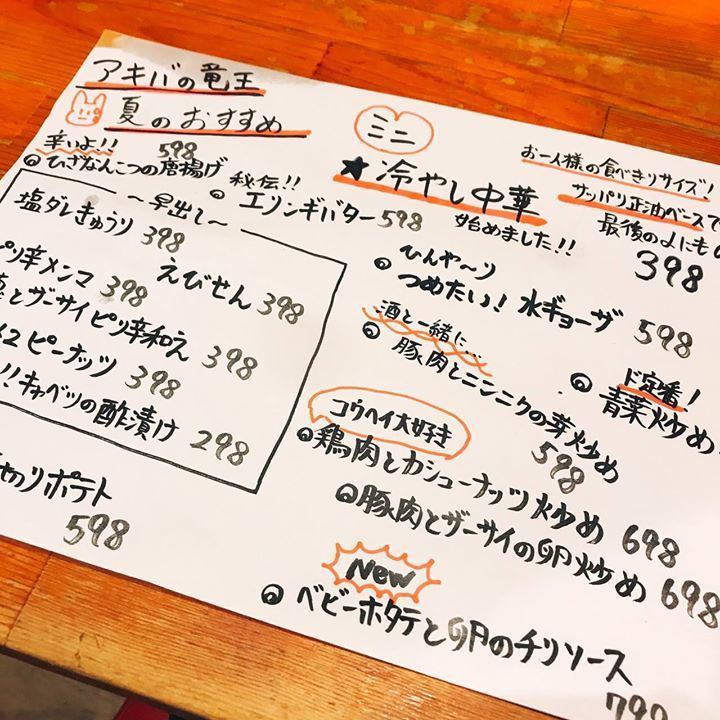 アキバの竜王
夏のおすすめ
辛いよ!! 598
ひざなんこつの唐揚げ
秘伝!!
エリンギバター 598
〜早出し〜
塩ダレきゅうり 398
えびせん 398
ピリ辛メンマ 398
とザーサイピリ辛和え 398
ピーナッツ 398
!!キャベツの酢漬け 298
ポテト
598
ミニ
お一人様の食べきりサイズ!
★冷やし中華
始めました!!
サッパリ正油ベースで
最後の〆にも
398
ひんや〜り
つめたい!水ギョーザ 598
酒と一緒に…
豚肉とニンニクの芽炒め
598
ド定番!
青菜炒め
コウヘイ大好き
鶏肉とカシューナッツ炒め 698
豚肉とザーサイの卵炒め 698
New
ベビーホタテと卵のチリソース